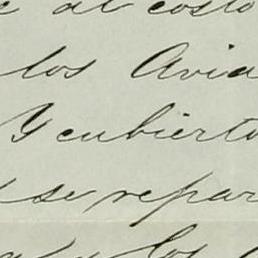 e al costo
los Avia
Y cubierto
se repar
y los